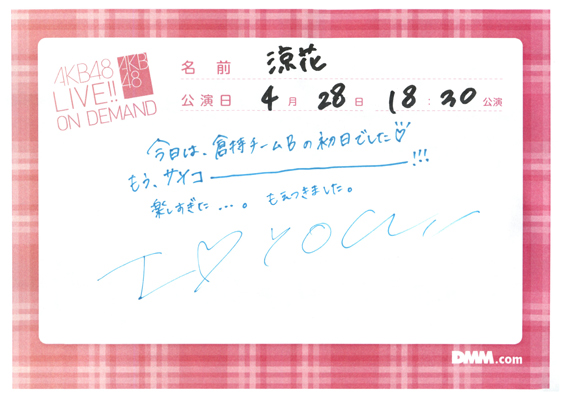 AKB48
LIVE!!
ON DEMAND
AKB
48
名 前 涼花
公演日 4 月 28 日 18 : 30 公演
今日は、倉持チームBの初日でした♡
もう、サイコ――――!!!
楽しすぎた…。もえつきました。
I ♡ YOU
DMM.com